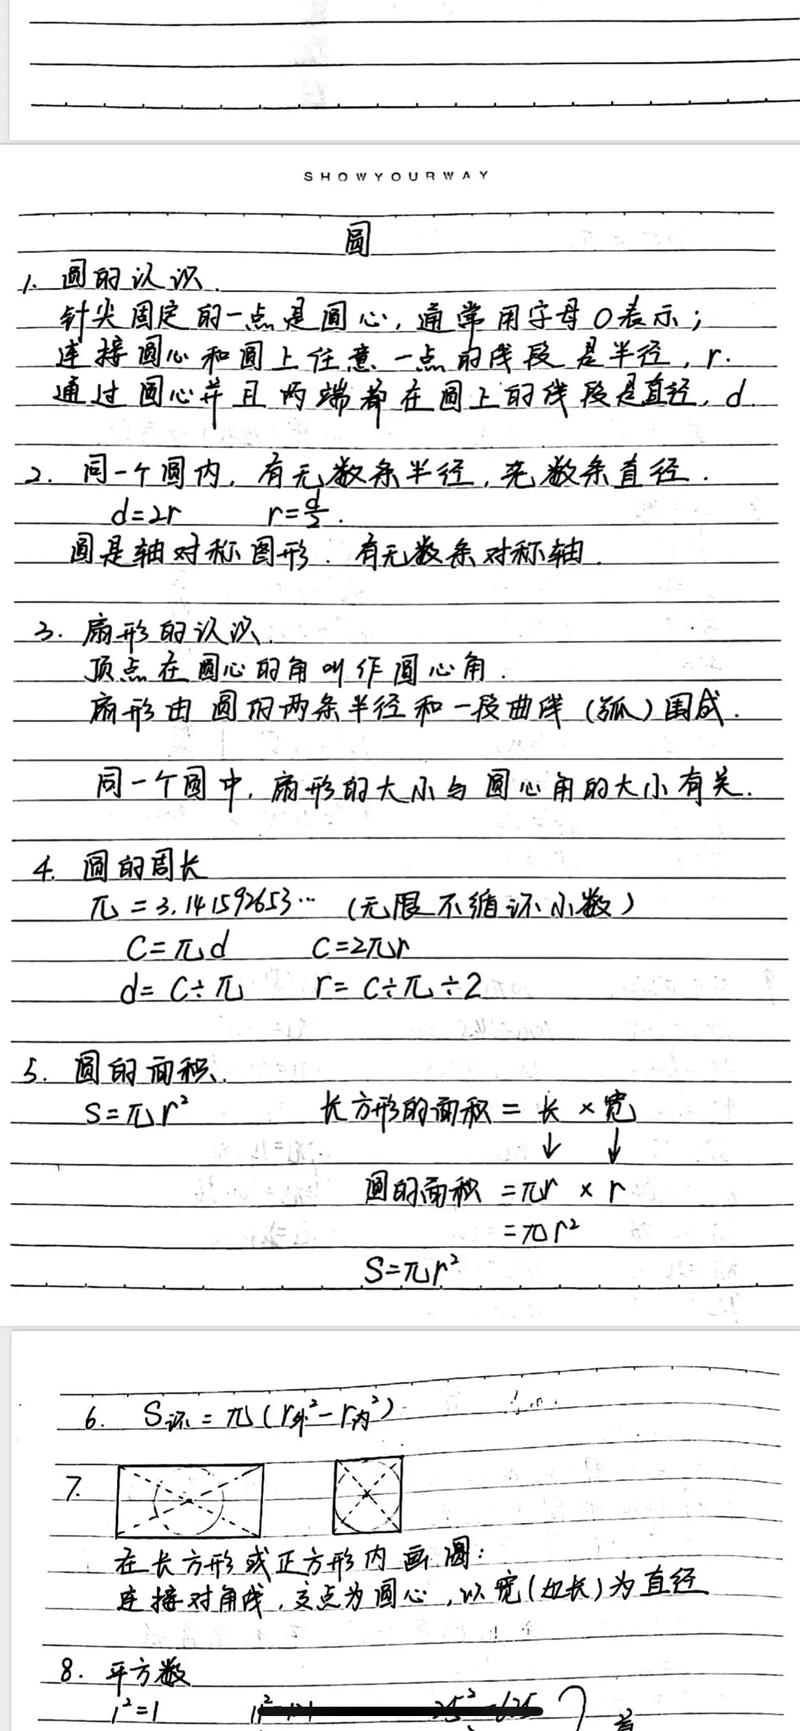 SHOWYOURWAY
圆
1. 圆的认识.
针尖固定的一点是圆心, 通常用字母O表示;
连接圆心和圆上任意一点的线段是半径, r.
通过圆心并且两端都在圆上的线段是直径, d
2. 同一个圆内, 有无数条半径, 无数条直径.
d=2r r=d/2.
圆是轴对称图形. 有无数条对称轴.
3. 扇形的认识.
顶点在圆心的角叫作圆心角.
扇形由圆的两条半径和一段曲线(弧)围成.
同一个圆中, 扇形的大小与圆心角的大小有关.
4. 圆的周长
π=3.141592653… (无限不循环小数)
C=πd C=2πr
d=C÷π r=C÷π÷2
5. 圆的面积.
S=πr² 长方形的面积=长×宽
↓ ↓
圆的面积=πr×r
=πr²
S=πr²
6. S环=π(r外²-r内²)
7.
在长方形或正方形内画圆:
连接对角线, 交点为圆心, 以宽(边长)为直径
8. 平方数
1²=1 25²=625